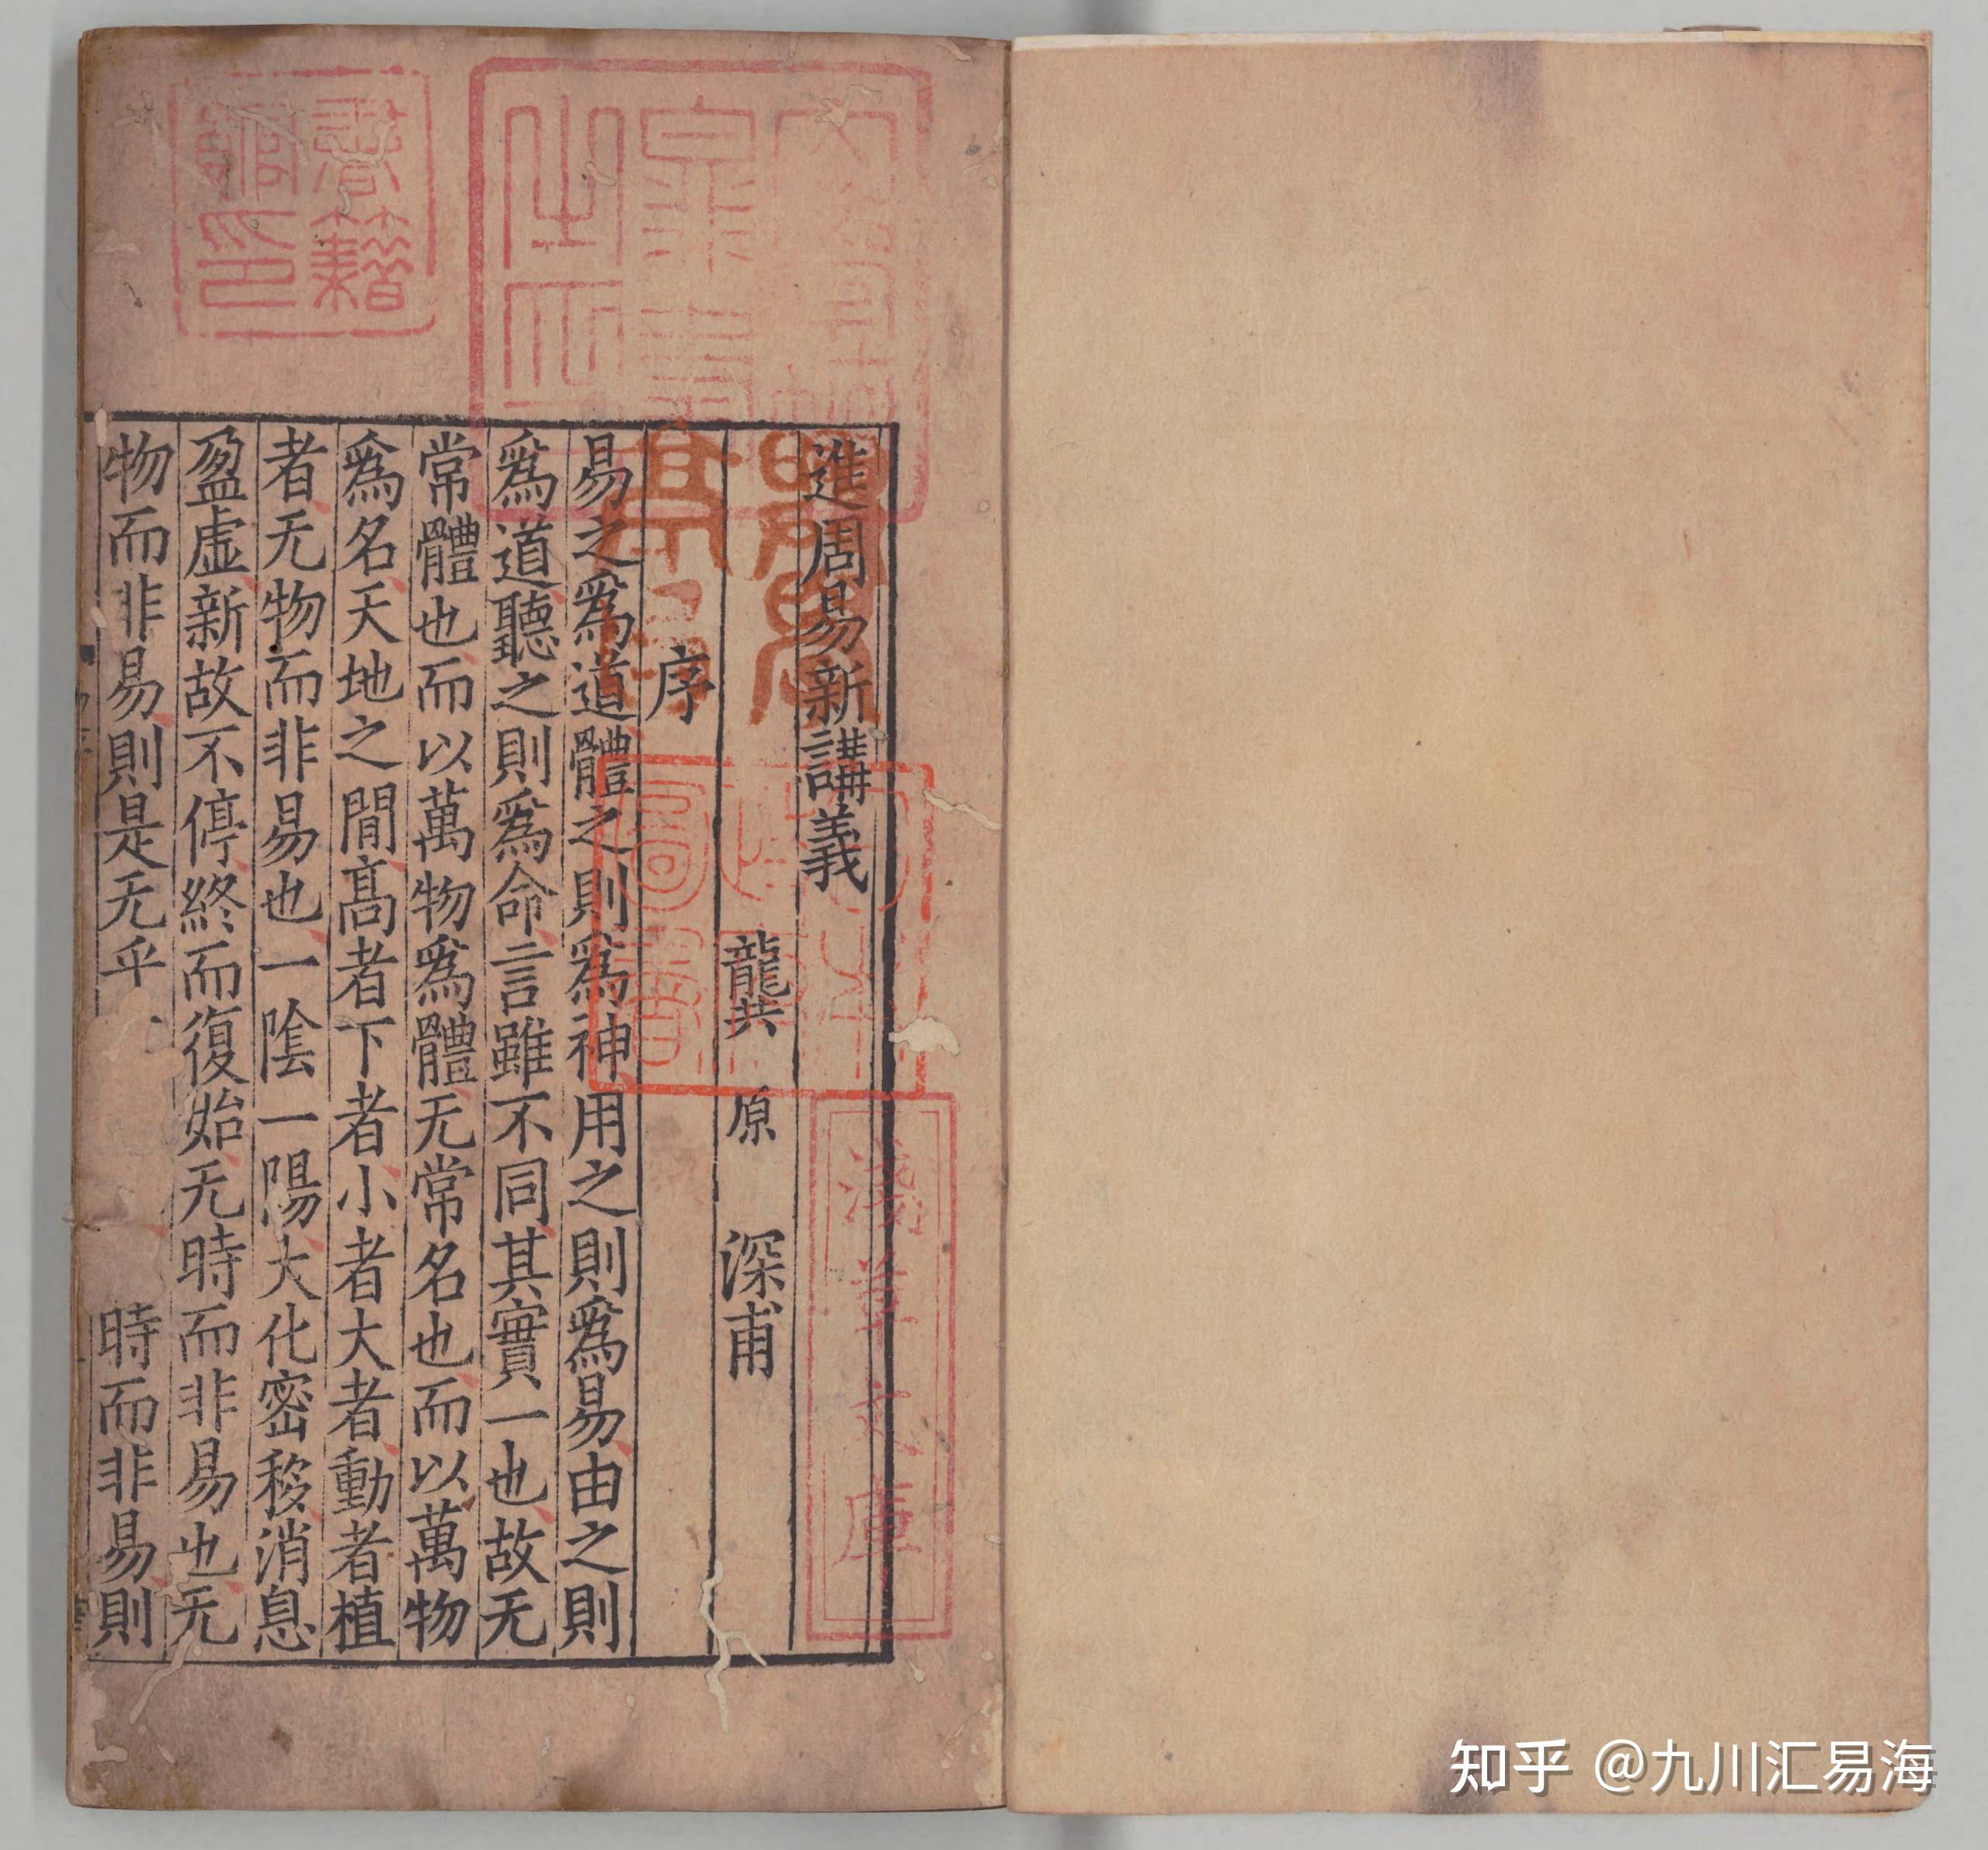 進周易新講義
龔 原 深甫
序
易之爲道體之則爲神用之則爲易由之則
爲道聽之則爲命言雖不同其實一也故无
常體也而以萬物爲體无常名也而以萬物
爲名天地之間髙者下者小者大者動者植
者无物而非易也一陰一陽大化密移消息
盈虛新故不停終而復始无時而非易也无
物而非易則是无乎
時而非易則
淺草文庫
書籍
館印
知乎 @九川汇易海